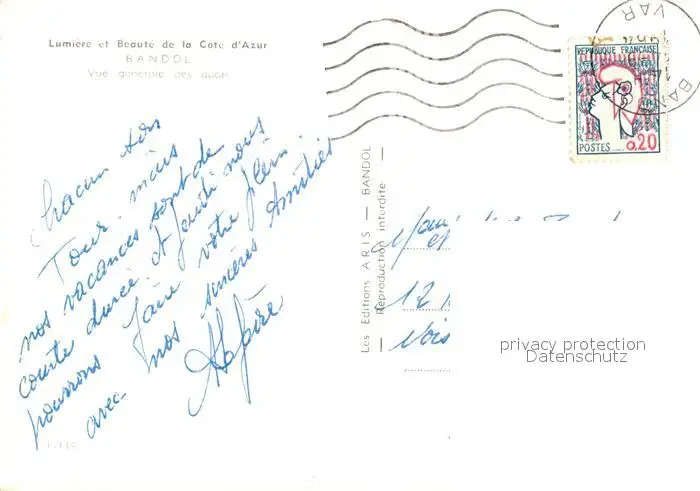 Lumière et Beauté de la Cote d'Azur
BANDOL
Vue générale des quais
Chacun son
Tour, mais
nos vacances sont de
courte durée et Jeudi nous
pourrons faire votre plein
avec nos sincères Amitiés
Les Editions ARIS — BANDOL
Reproduction interdite
REPUBLIQUE FRANÇAISE
POSTES 0,20
VAR
12
privacy protection
Datenschutz